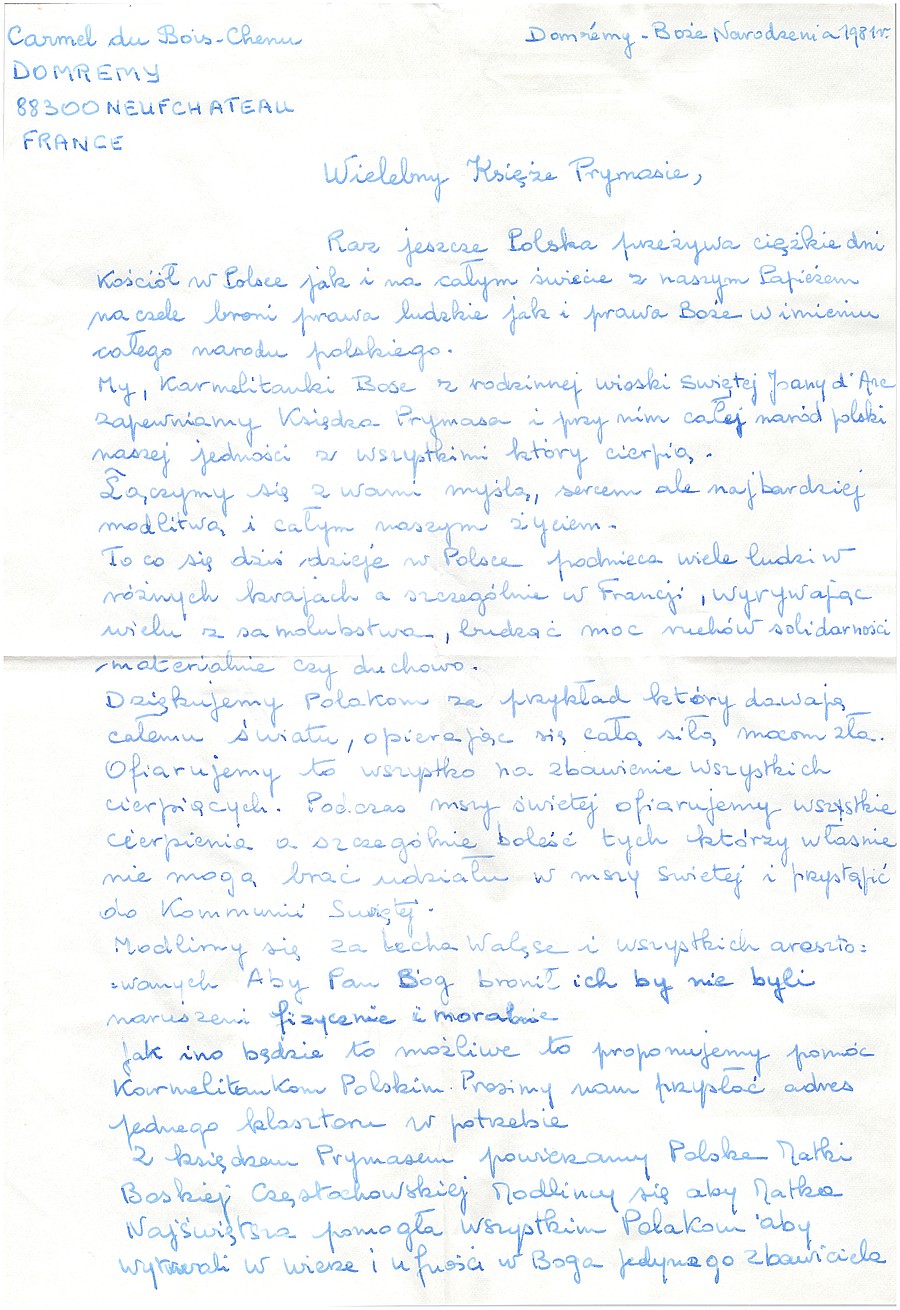 Carmel du Bois-Chenu
Domrémy - Boże Narodzenia 1981r.
DOMREMY
88300 NEUFCHATEAU
FRANCE
Wielebny Księże Prymasie,
Raz jeszcze Polska przeżywa ciężkie dni
Kościół w Polsce jak i na całym świecie z naszym Papieżem
na czele broni prawa ludzkie jak i prawa Boże w imieniu
całego narodu polskiego.
My, Karmelitanki Bose z rodzinnej wioski Swiętej Joany d'Arc
zapewniamy Księdza Prymasa i przy nim całej naród polski
naszej jedności z wszystkimi który cierpią.
Łączymy się z wami myślą, sercem ale najbardziej
modlitwą i całym naszym życiem.
To co się dziś dzieje w Polsce podnieca wiele ludzi w
różnych krajach a szczególnie w Francji, wyrywając
wielu z samolubstwa, budząć moc ruchów solidarności
materialnie czy duchowo.
Dziękujemy Polakom za przykład który dawają
całemu światu, opierając się całą siłą mocom zła.
Ofiarujemy to wszystko na zbawienie wszystkich
cierpiących. Podczas mszy świetej ofiarujemy wszystkie
cierpienia a szczególnie boleść tych którzy własnie
nie mogą brać udziału w mszy swietej i przystąpić
do Kommunii Swiętej.
Modlimy się za Lecha Walęse i wszystkich areszto=
=wanych Aby Pan Bóg bronił ich by nie byli
naruszeni fizycznie i moralnie
Jak ino będzie to możliwe to proponujemy pomóc
Karmelitankom Polskim. Prosimy nam przysłać adres
jednego klasztoru w potrzebie
Z księdzem Prymasem powierzamy Polske Matki
Boskiej Częstochowskiej Modlimy się aby Matka
Najświętsza pomogła wszystkim Polakom aby
wytrwali w wierze i ufności w Boga jedynego zbawiciela